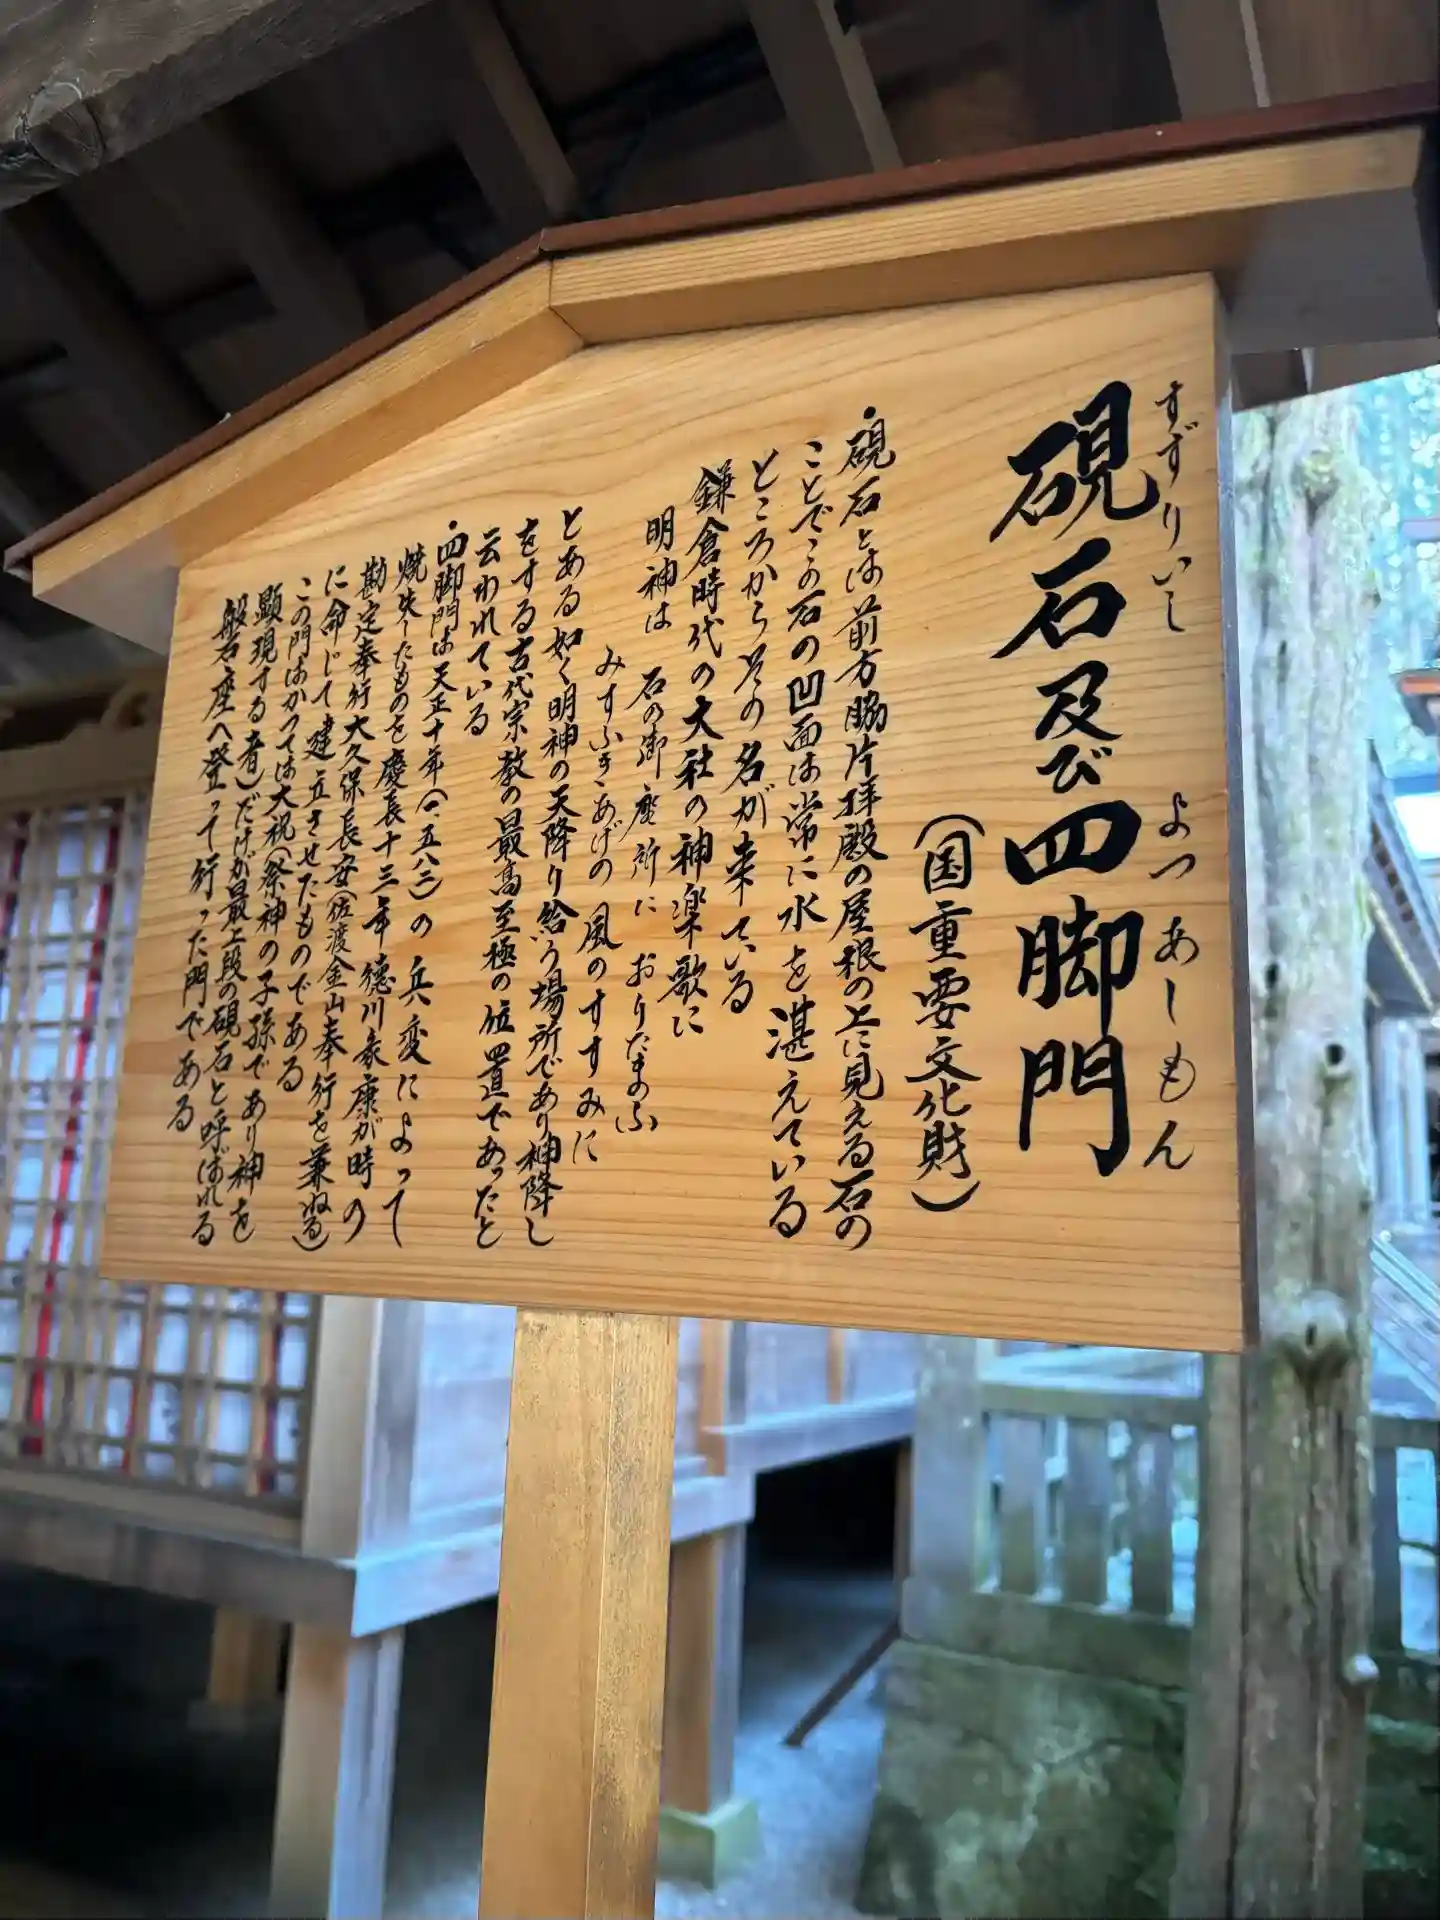 すずりいし よつあしもん
硯石及び四脚門
(国重要文化財)
・硯石とは前方脇片拝殿の屋根の上に見える石の
ことでこの石の凹面は常に水を湛えている
ところからその名が来ている
鎌倉時代の大社の神楽歌に
明神は 石の御座所に おりたまふ
みすふきあげの 風のすすみに
とある如く明神の天降り給う場所であり神降し
をする古代宗教の最高至極の位置であったと
云われている
・四脚門は天正十年(一五八二)の兵変によって
焼失したものを慶長十三年徳川家康が時の
勘定奉行大久保長安(佐渡金山奉行を兼ねる)
に命じて建立させたものである
この門はかつては大祝(祭神の子孫であり神を
顕現する者)だけが最上段の硯石と呼ばれる
般石座へ登って行った門である